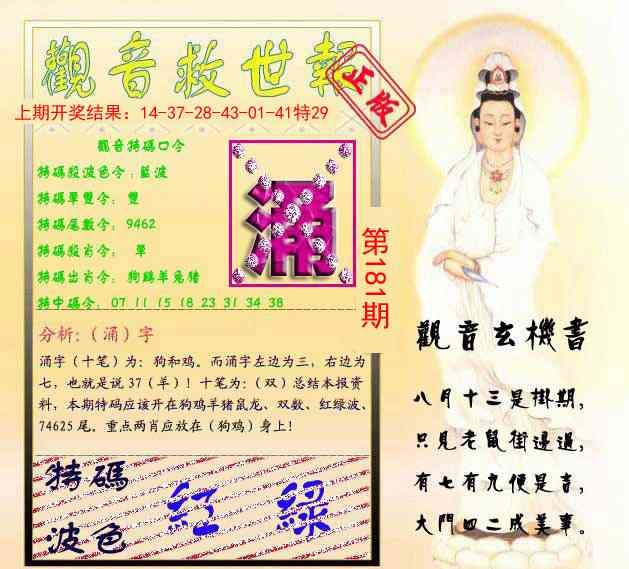 觀音救世報
正版
上期开奖结果：14-37-28-43-01-41特29
觀音特碼口令
特碼殺波色令：藍波
特碼單雙令：雙
特碼尾數令：9462
特碼殺肖令：單
特碼出肖令：狗鷄羊兔猪
特中碼令：07 11 15 18 23 31 34 38
涌
第181期
分析：（涌）字
涌字（十笔）为：狗和鸡。而涌字左边为三，右边为
七，也就是说37（羊）！十笔为：（双）总结本报资
料，本期特码应该开在狗鸡羊猪鼠龙、双数、红绿波、
74625尾。重点两肖应放在（狗鸡）身上！
特碼
波色
紅 綠
觀音玄機書
八月十三是掛期，
只見老鼠街邊過，
有七有九便是吉，
大門四二成美事。